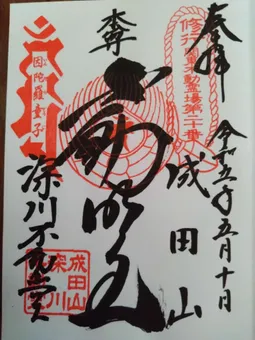 奉拝
令和五年五月十日
修行 関東不動霊場第二十番
成田山
本尊
不動明王
因陀羅童子
深川不動堂
成田山
深川